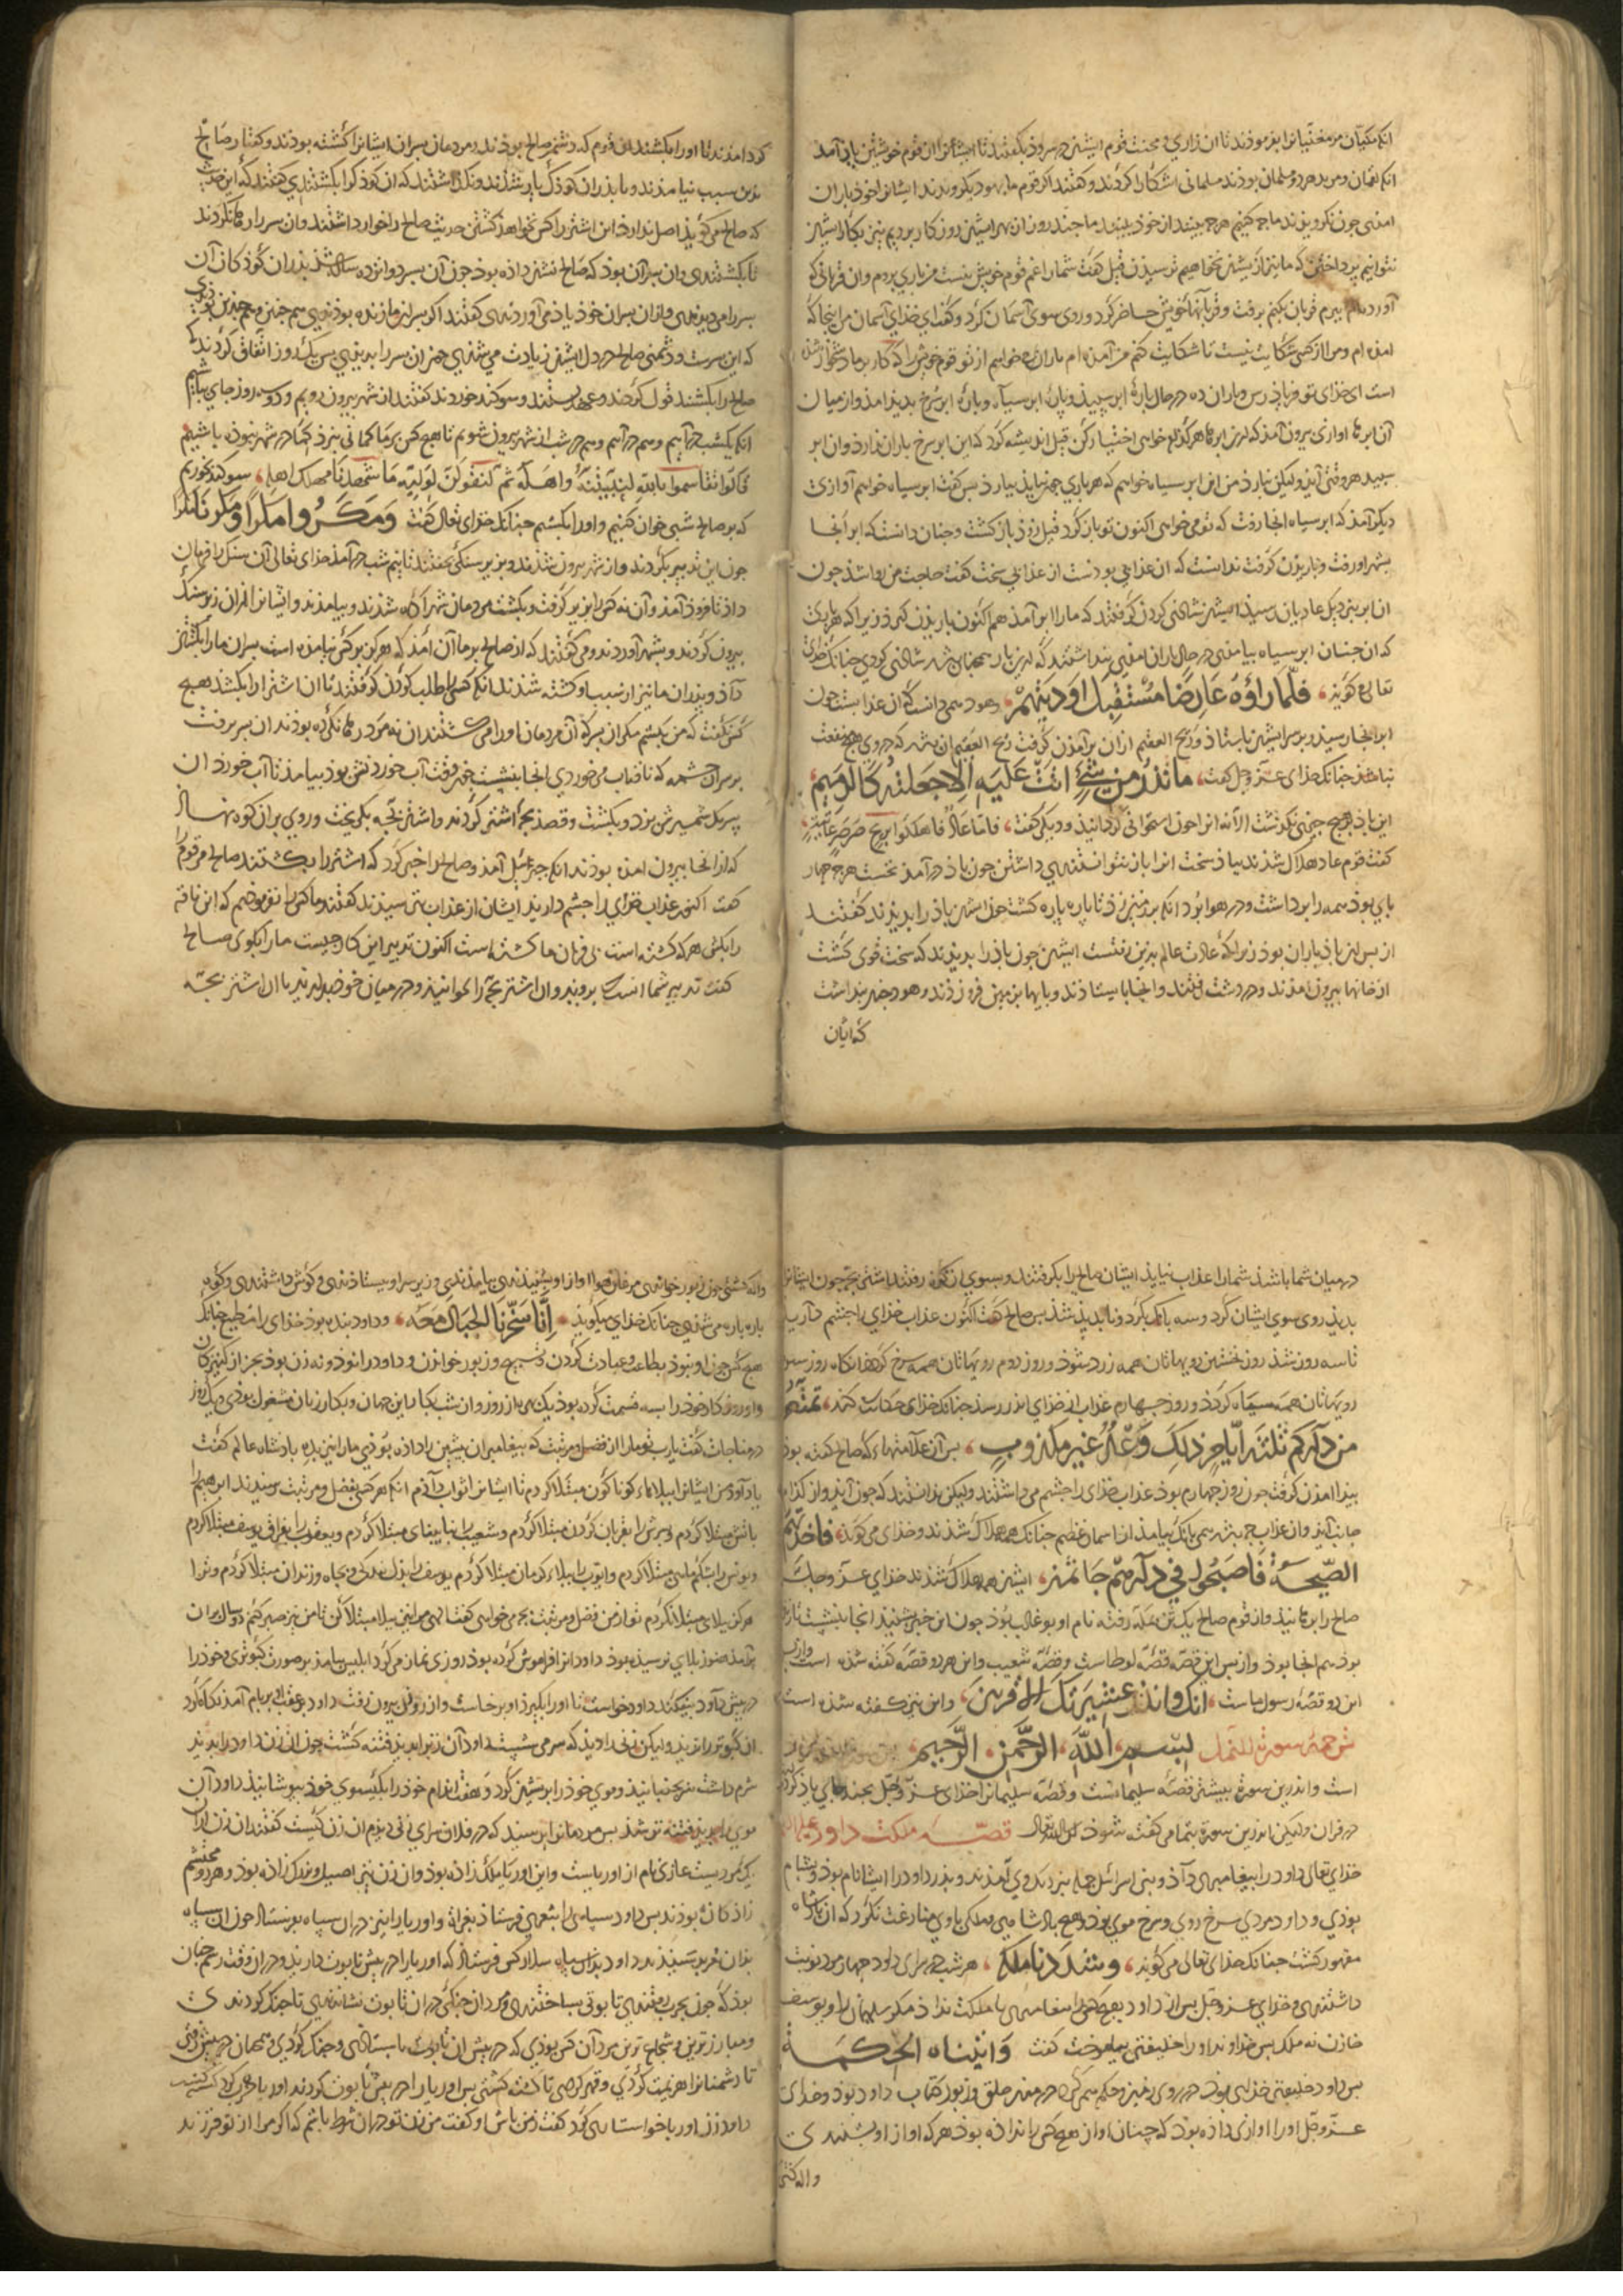 انکه مکیان مر مغنیانرا بفرموذند تا ان زاری و محنت قوم ایشتن در سروذ بکفتند تا ایشانرا ان قوم خویشتن یاذ آمد
انکه لقمان و مرید هر دو مسلمان بوذند مسلمانی اشکارا کردند و کفتند اکر قوم ما بهود بکرویدند ایشانرا خوذ باران
امذی چون نکرویذند ما چه کنیم هرچه بینند از خوذ بینند ما چند رون از بهر ایشتن روزکار بردیم نیز بکار ایشان
نتوانیم پرداختن که ما نیز از ایشتن نخواهیم ترسیذن قیل کفت شما را غم قوم خویش نیست من باری بروم و ان قربانی که
آورده‌ام ببرم قربان کنم برفت و قربانها خویش حاضر کرد و روی سوی آسمان کرد و کفت ای خذای آسمان من اینجا که
امذه ام و مرا از کسی شکایت نیست تا شکایت کنم من آمذه ام باران خواهم از تو قوم خویش را که کار بر ما دشخوار شذه
است ای خذای تو فریاذ رس و باران ده در حال پارۀ ابر سپیذ و پارۀ ابر سیاه و پارۀ ابر سرخ بدیذ امذ و از میان
آن ابرها اوازی بیرون آمذ که ازین ابرها هر کذام خواهی اختیار کن قیل اندیشه کرد که این ابر سرخ باران نذارذ وان ابر
سپید هر وقتی آیذ ولیکن نبارذ من این ابر سیاه خواهم که هر باری چون بیایذ ببارذ پس کفت ابر سیاه خواهم آوازی
دیکر آمذ که ابر سیاه انجا رفت که تو می خواهی اکنون تو باز کرد قیل زوذ باز کشت و چنان دانست که ابر انجا
بشهر او رفت و باریذن کرفت ندانست که ان عذابی بوذست از عذابی سخت کفت حاجت من روا شذ چون
ان ابر بنزدیک عادیان رسیذ ایشتن شاذی کردن کرفتند که ما را ابر آمذ هم اکنون باریذن کیرذ زیرا که هر بار کی
کذان جنسان ابر سیاه بیامذی در حال باران امذی پنداشتند که این بار همچنان شذ شاذی کردی چنانک خذای
تعالی کویذ فلمّا رأوه عارضًا مستقبل اودیتهم و هود همی دانست که ان عذابست چون
ابر انجا رسیذ و برسر ایشتن بایستاذ و ریح العقیم از ان بر آمذن کرفت ریح العقیم ان بذ که در وی هیچ منفعت
نباشذ چنانک خذای عزّ و جل کفت ما تذر من شیءٍ اتت علیه الا جعلته کالرمیم
این باذ بر هیچ چیز نکذشت الا نه انرا چون استخوانی کردانیذ و دیکر کفت فامّا عادٌ فاهلکوا بریحٍ صرصرٍ عاتیةٍ
کفت قوم عاد هلاک شذند بباذ سخت انرا باز نتوانستندی داشتن چون باذ در آمذ نخست هرچه چهار
پای بوذ همه را برداشت و در هوا برد انکه بر زمین زذ تا پاره پاره کشت چون ایشان باذ را بدیذند کفتند
از پس این باذ باران بوذ زیرا که عادت عالم بدین رفتست ایشتن چون باذ را بدیذند که سخت قوی کشت
از خانها بیرون امذند و در دشت رفتند و انجا بایستاذند و پایها بزمین فرو زذند و هود خبر نداشت
که ایشان
کرد امذند تا او را بکشند ان قوم که دشمن صالح بوذند و مردمان پسران ایشانرا کشته بوذند و کفتار صالح
بذین سبب نیامذند و با پذران کوذک یار نشذند و نکذاشتند که ان کوذک را بکشتندی کفتند که این حدیث
که صالح می کویذ اصل ندارذ این اشتر را کس نخواهذ کشتن حدیث صالح را خوار داشتند وان پسر را رها نکردند
تا بکشتندی وان پسر آن بوذ که صالح نشان داذه بوذ چون آن پسر دوانزده ساله شذ پذران کوذکان آن
پسر را می دیذندی و از ان پسران خوذ یاذ می آوردندی کفتند اکر پسران ما زنده بوذندی هم چنین و هم چندین بوذندی
که این پسرست و دشمنی صالح در دل ایشتن زیادت می شذی چون ان پسر را بدیذندی پس یک روز اتفاق کردند که
صالح را بکشند قول کردند و عهد بستند و سوکند خوردند کفتند ان شهر بیرون رویم و دو سه روز جای بباشیم
انکه یکشب در آییم و هم در شب از شهر بیرون شویم تا هیچ کس بر ما کمانی نبرذ کما در شهر نبوذه باشیم
قالوا تقاسموا بالله لنبیتنه واهله ثم لنقولن لولیه ما شهدنا مهلک اهله سوکند خوریم
که بر صالح شبی خون کنیم و او را بکشیم چنانک خذای تعالی کفت ومکروا مکرًا ومکرنا مکرًا
چون این تدبیر بکردند و از شهر بیرون شذند و بزیر سنکی بخفتند تا نیم شب در آمذ خذای تعالی آن سنک را فرمان
داذ تا فروذ آمذ و آن نه کس را بزیر کرفت و بکشت مردمان شهر آکاه شذند و بیامذند و ایشانرا از ان زیر سنک
بیرون کردند و بشهر آوردند و می کفتند که از صالح بر ما آن امذ که هرکز بر کس نیامذه است پسران ما را بکشتن
داذ و پذران ما نیز از سبب او کشته شذند انکه کسی را طلب کردن کرفتند تا ان اشتر را بکشذ هیچ
کس نکفت که من بکشم مکر ان پسرک آن مردمان او را می کشتند ان نه مرد رها نکرده بوذند ان پسر برفت
بر سر ان چشمه که ناقه آب می خوردی انجا بنشست چون وقت آب خوردنش بوذ بیامذ تا آب خورذ ان
پسر یک شمشیر ش بزد و بکشت و قصد بچۀ اشتر کردند و اشتر بچه بکریخت و روی بران کوه نهاذ
که از انجا بیرون امذه بوذند انکه جبرئیل آمذ و صالح را خبر کرد که اشتر را بکشتند صالح مر قوم را
کفت اکنون عذاب خذای را چشم داریذ ایشان از عذاب بترسیذند کفتند ما کس را نفرموذیم که این ناقه
را بکش هر که کشته است بی فرمان ما کشته است اکنون تدبیر این کار چیست ما را بکوی صالح
کفت تدبیر شما انست برویذ و ان اشتر بچه را بخوانیذ و در میان خوذ بداریذ تا ان اشتر بچه
در میان شما باشذ شما را عذاب نیایذ ایشان صالح را بکرفتند و سوی ان کوه رفتند اشتر بچه چون ایشانرا
بدیذ روی سوی ایشان کرد و سه بانک بکرد و ناپدیذ شذ پس صالح کفت اکنون عذاب خذای را چشم داریذ
تا سه روز شذ روز نخستین رویهاتان همه زرد شوذ و روز دوم رویهاتان همه سرخ کردذ انکاه روز سیوم
رویهاتان همه سیاه کردذ و روز چهارم عذاب از خذای اندر رسذ چنانک خذای حکایت کند تمتعوا
فی دارکم ثلثة ایام ذلک وعد غیر مکذوب پس آن علامتهاء که صالح کفته بوذ
پیدا امذن کرفت چون روز چهارم بوذ عذاب خذای را چشم می داشتند ولیکن ندانستند که چون آیذ و از کذام
جانب آیذ وان عذاب جز نیم شبی بانک بیامذ از اسمان عظیم چنانک همه هلاک شذند و خذای می کویذ فاخذتهم
الصّیحة فاصبحوا فی دارهم جاثمین ایشتن همه هلاک شذند خذای عزّ و جلّ
صالح را برهانیذ و از قوم صالح یک تن بمکه رفته نام او بو غالب بوذ چون این خبر شنیذ انجا بنشست تا زنده
بوذ هم انجا بوذ و از پس این قصه قصّۀ لوطاست و قصّۀ شعیب و این هر دو قصّه کفته شذه است و از پس
این دو قصّه رسول ماست انک وانذر عشیرتک الاقربین، و این نیز کفته شذه است
ترجمة سورة النمل بسم الله الرحمن الرحیم
است و اندرین سورة بیشتر قصّه سلیمانست و قصّه سلیمانرا خذای عزّ و جل بچند جای یاذ کرد
در قران ولیکن اندرین سورة بتمامی کفته شوذ ان شاء الله تعالی قصّه ملکت داود علیه السلام
خذای تعالی داود را پیغامبری داذ و بنی اسرائیل جمله بنزدیک وی آمذند و پذر داود را ایشا نام بوذ و بشام
بوذی و داود مردی سرخ روی و سرخ موی بوذ و هیچ پادشاهی و ملکی با وی منازعت نکرد که ان پادشاه
مقهور کشت چنانک خذای تعالی می کویذ وشددنا ملکه هر شب در سرای داود چهار مرد نوبت
داشتندی و خذای عز و جل پس از داود هیچ کس را پیغامبری با مملکت نداذ مکر سلیمان را و یوسف
خازن نه ملک پس خداوند او را خلیفتی بیاموخت کفت واتیناه الحکمة
پس داود خلیفتی خذای بوذ در روی زمین و حکم همی کرد در میان خلق و زبور کتاب داود بوذ و خذای
عزّ و جل او را اوازی داذه بوذ که چنان اواز هیچ کس را نداذه بوذ هر که اواز او بشنیدی
واله کشتی
واله کشتی چون زبور خواندی مرغان هوا اواز او بشنیذندی بیامذندی و زبر سر او بیستاذندی و کوش داشتندی و کوه
پاره پاره می شذی چنانک خذای میکویذ انّا سخّرنا الجبال معه و داود بنده بوذ خذای را مطیع چنانک
هیچ کس چون او نبوذ بطاعه و عبادت کردن و تسبیح و زبور خواندن و داود را نوذ و نه زن بوذ بجز از کنیزکان
و او روزکار خوذ را بسه قسمت کرده بوذ یک روز و ان شب بکار این جهان و بکار زنان مشغول بوذی و یک روز
در مناجات کفت یارب تو ما را از فضل و مرتبت که پیغامبران پیشین را داذه بوذی ما را نیز بده پادشاه عالم کفت
یا داود من ایشانرا ببلاهاء کوناکون مبتلا کردم تا ایشانرا ثواب داذم انکه هر کسی بفضل و مرتبت رسیدند ابرهیم را
باتش مبتلا کردم و پسرش را بقربان کردن مبتلا کردم و شعیب را بنابینایی مبتلا کردم و یعقوب را بفراق یوسف مبتلا کردم
و یونس را بشکم ماهی مبتلا کردم و ایوب را ببلاء کرمان مبتلا کردم یوسف را ببندکی و بچاه و زندان مبتلا کردم و ترا
هرکز ببلایی مبتلا نکردم تو از من فضل و مرتبت چه می خواهی کفت الهی مرا نیز ببلا مبتلا کن تا من نیز صبر کنم دو سال بران
بر آمذ هنوز بلایی نرسیذه بوذ داود انرا فراموش کرده بوذ روزی نماز می کرد ابلیس بیامذ بر صورت کبوتری و خوذ را
در پیش داود بیفکند داود خواست تا او را بکیرذ او برخاست و از روزن بیرون رفت داود بر عقب او بر بام آمذ نکاه کرد
ان کبوتر را ندیذ ولیکن زنی را دیذ که سر می شست داود آن زن را بدیذ فتنه کشت چون ان زن داود را بدید
شرم داشت سر بجنبانیذ و موی خوذ را بر خویشتن کرد و هفت اندام خوذ را بکیسوی خوذ بپوشانیذ داود آن
موی او بدیذ فتنه تر شذ پس مردمانرا پرسیذ که در فلان سرای زنی دیذم ان زن کیست کفتند ان زن
یک مردیست غازی نام او اوریاست و این اوریا ملک زاذه بوذ وان زن نیز اصیل و بزرک زاذه بوذ و هر دو محتشم
زاذکان بوذند پس داود سپاهی را بثغری فرستاذ بغزاة و اوریا را نیز در ان سپاه بفرستاذ چون ان سپاه
بذان ثغر رسیذند داود بذان سپاه سلار کس فرستاذ که اوریا را در پیش تابوت داریذ و در ان وقت رسم چنان
بوذ که چون بحرب رفتندی تابوتی بساختندی و مردان جنکی در ان تابوت نشاندندی تا جنک کردندی
و مبارزترین و شجاع ترین مردان کس بوذی که در پیش ان تابوت بایستاذی و جنک کردی و همچنان در پیش رفتی
تا دشمنانرا هزیمت کردی و قهر کردی تا کشته کشتی پس اوریا را در پیش تابوت کردند اوریا حرب کرد کشته
داود زن اوریا خواستاری کرد کفت زن من باش او کفت من زن تو بذان شرط باشم که اکر مرا از تو فرزند